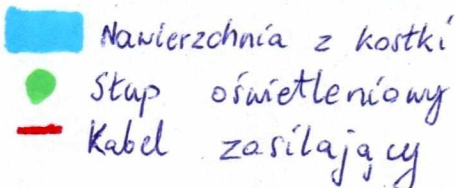 Nawierzchnia z kostki
Słup oświetleniowy
Kabel zasilający